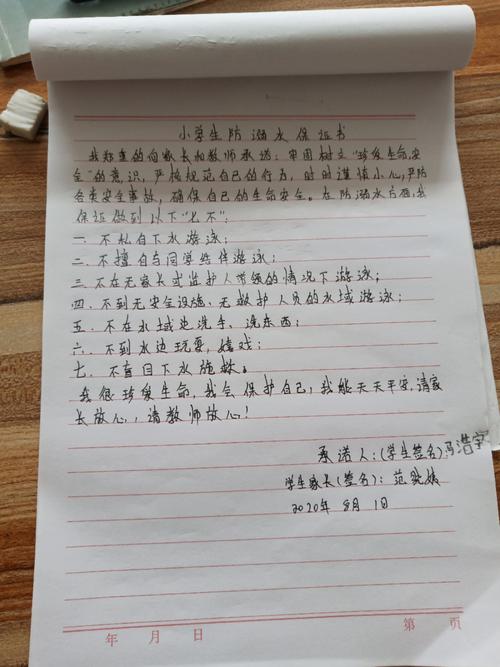 小学生防溺水保证书
我郑重的向家长和教师承诺：牢固树立“珍爱生命，安
全”的意识，严格规范自己的行为，时时谨慎小心，严防
各类安全事故，确保自己的生命安全。在防溺水方面，我
保证做到以下“七不”：
一．不私自下水游泳；
二．不擅自与同学结伴游泳；
三．不在无家长或监护人带领的情况下游泳；
四．不到无安全设施、无救护人员的水域游泳；
五．不在水域边洗手、洗东西；
六．不到水边玩耍，嬉戏；
七．不盲目下水施救。
我很珍爱生命，我会保护自己，我能天天平安，请家
长放心，请教师放心！
承诺人：（学生签名）冯浩宇
学生家长（签名）：范
2020年 8月 1日
年 月 日 第 页